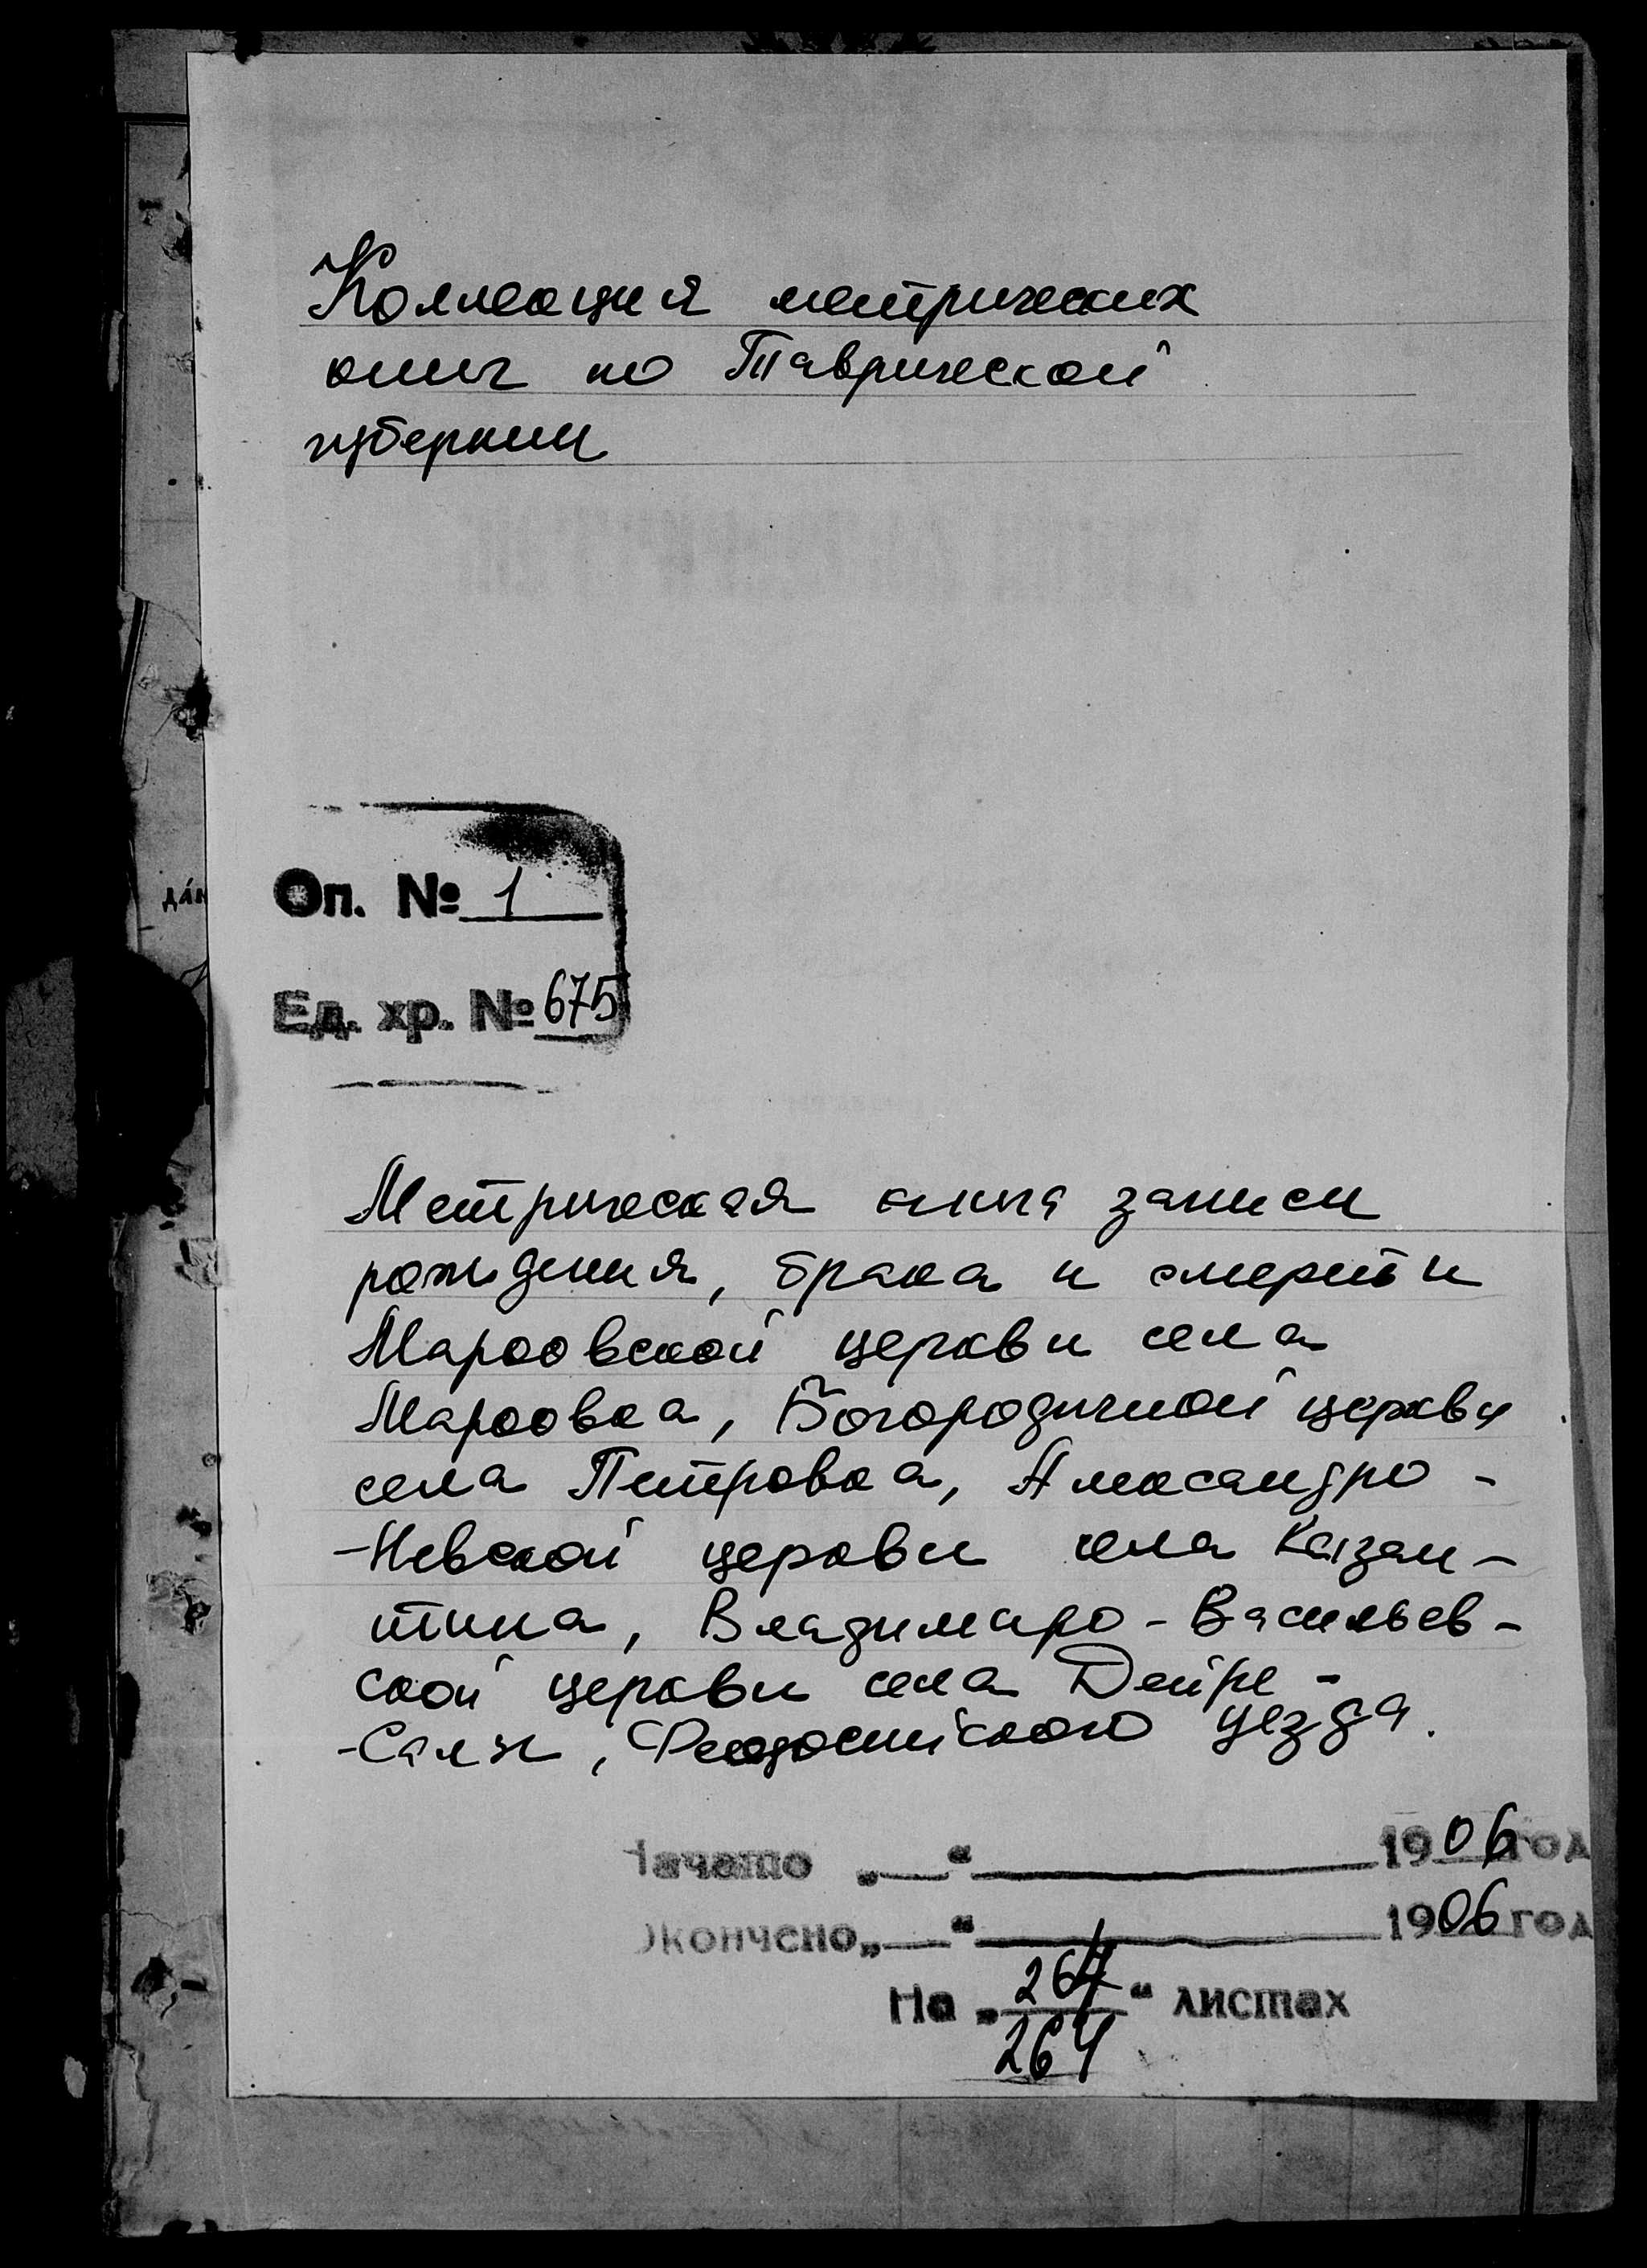 Коллекция метрических
книг по Таврической
губернии
Оп. № 1
Ед. хр. № 675
Метрическая книга записи
рождения, брака и смерти
Марфовской церкви села
Марфовка, Богородичной церкви
села Петровка, Александро-
-Невской церкви села Казан-
типа, Владимиро-Васильев-
ской церкви села Дейре-
-Салы, Феодосийского уезда.
Начато „ “ 1906 год
Окончено „ “ 1906 год
На „ 264 “ листах
264